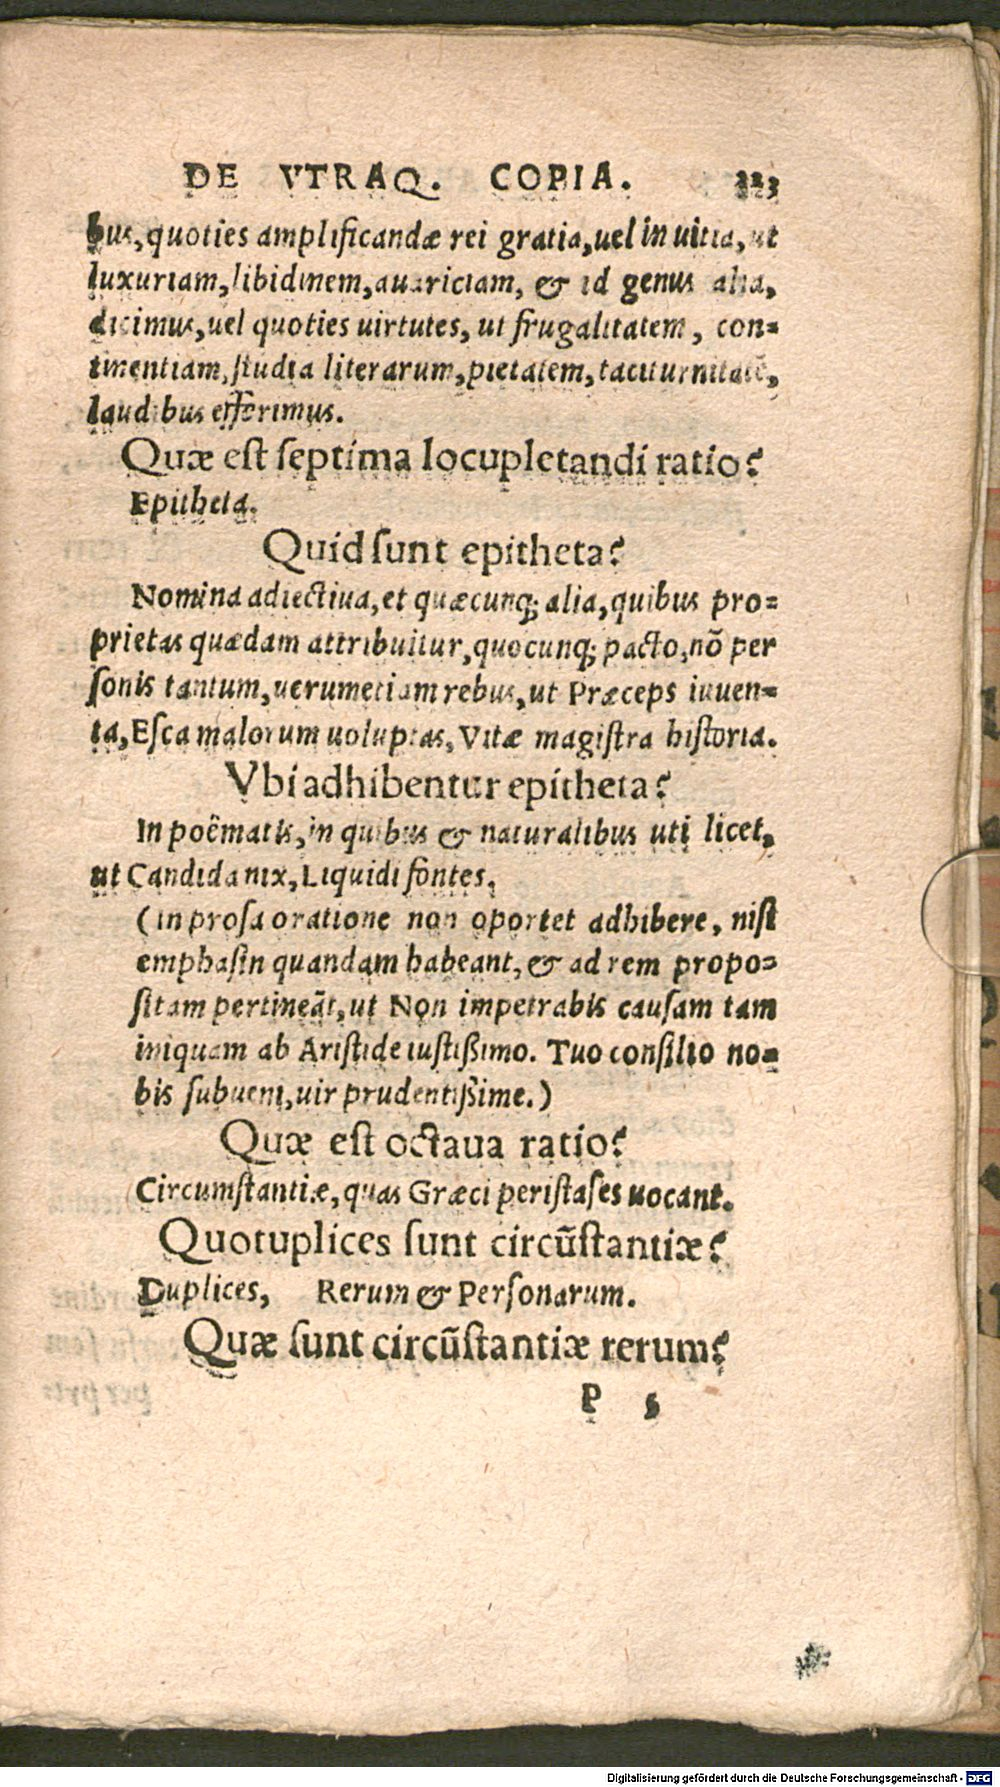 DE VTRAQ. COPIA. 223
bus, quoties amplificandæ rei gratia, uel in uitia, ut
luxuriam, libidinem, auariciam, & id genus alia,
dicimus, uel quoties uirtutes, ut frugalitatem, con-
tinentiam, studia literarum, pietatem, taciturnitatẽ,
laudibus efferimus.
Quæ est septima locupletandi ratio?
Epitheta.
Quid sunt epitheta?
Nomina adiectiua, et quæcunq; alia, quibus pro-
prietas quædam attribuitur, quocunq; pacto, nõ per
sonis tantum, uerumetiam rebus, ut Præceps iuuen-
ta, Esca malorum uoluptas, Vitæ magistra historia.
Vbi adhibentur epitheta?
In poëmatis, in quibus & naturalibus uti licet,
ut Candida nix, Liquidi fontes.
(in prosa oratione non oportet adhibere, nisi
emphasin quandam habeant, & ad rem propo-
sitam pertineãt, ut Non impetrabis causam tam
iniquam ab Aristide iustißimo. Tuo consilio no-
bis subueni, uir prudentißime.)
Quæ est octaua ratio?
Circumstantiæ, quas Græci peristases uocant.
Quotuplices sunt circũstantiæ?
Duplices, Rerum & Personarum.
Quæ sunt circũstantiæ rerum?
P 5
Digitalisierung gefördert durch die Deutsche Forschungsgemeinschaft - DFG